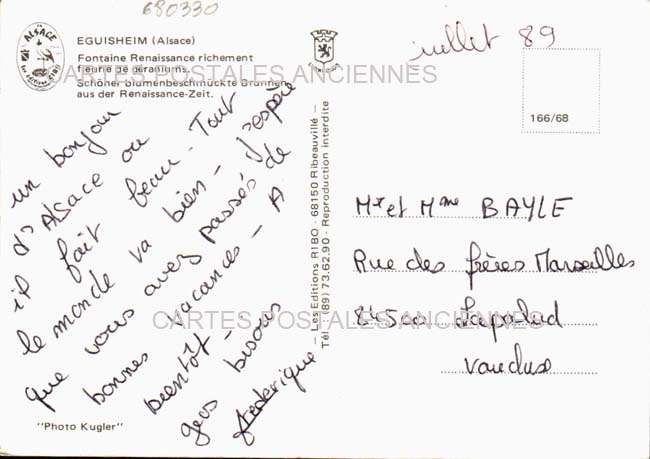 680330
juillet 89
ALSACE
EGUISHEIM (Alsace)
Fontaine Renaissance richement
fleurie de géraniums.
Schöner blumenbeschmückte Brunnen
aus der Renaissance-Zeit.
CARTES POSTALES ANCIENNES
166/68
un bonjour
d'Alsace ou
il fait beau. Tout
le monde va bien - J'espère
que vous avez passés de
bonnes vacances - A
bientôt -
gros bisous
frederique
"Photo Kugler"
— Les Editions RIBO - 68150 Ribeauvillé —
Tél.: (89) 73.62.90 - Reproduction interdite
Mr et Mme BAYLE
Rue des frères Marseilles
84500 Lapalud
Vaucluse
CARTES POSTALES ANCIENNES